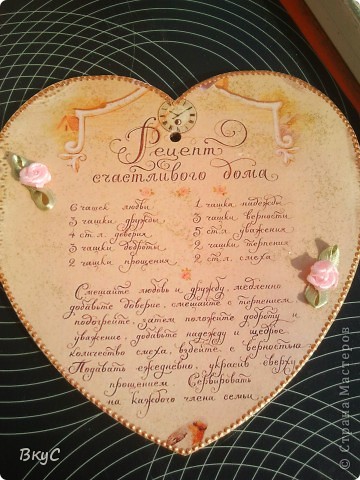 Рецепт
счастливого дома
6 чашек любви
3 чашки дружбы
4 ст.л. доверия
3 чашки доброты
2 чашки прощения
1 чашка надежды
3 чашки верности
5 ст.л. уважения
2 чашки терпения
2 ст.л. смеха
Смешайте любовь и дружбу, медленно
добавьте доверие, смешайте с терпением,
подогрейте, затем положите доброту и
уважение, добавьте надежду и щедрое
количество смеха, взбейте с верностью
Подавать ежедневно, украсив сверху
прощением Сервировать
на каждого члена семьи
ВкуС
© Страна Мастеров